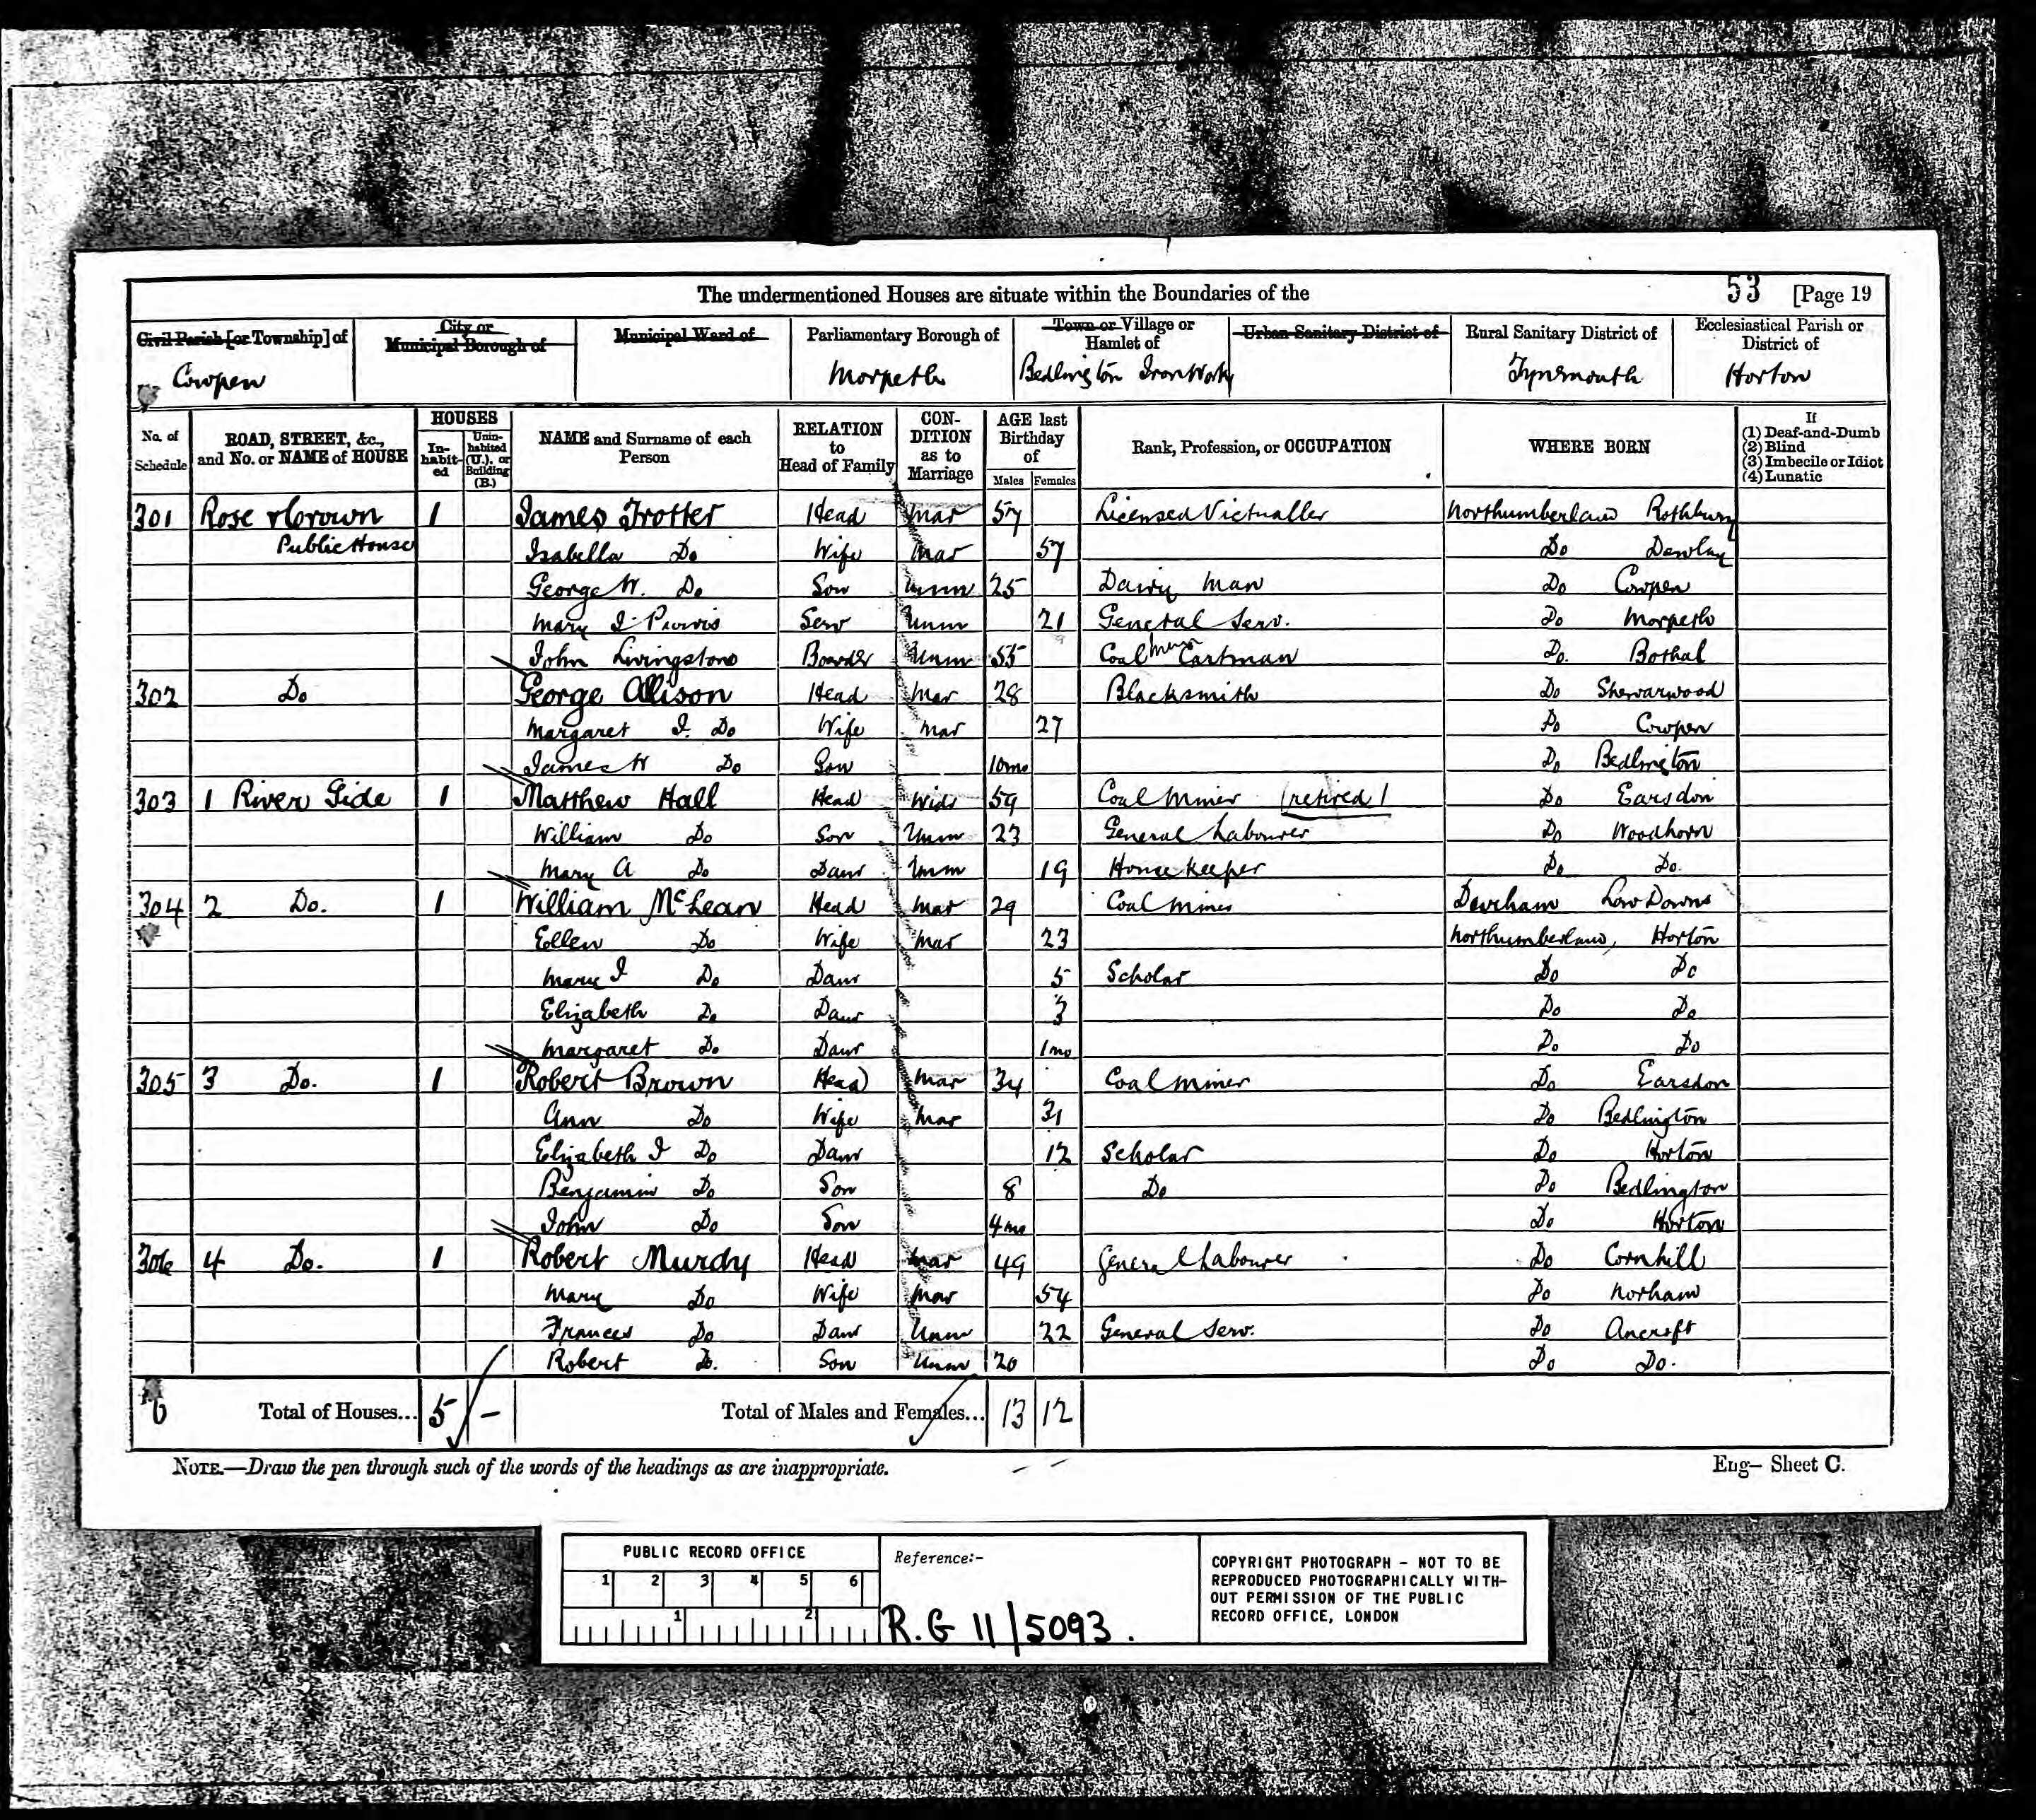 The undermentioned Houses are situate within the Boundaries of the 53 [Page 19
Civil Parish [or Township] of City or Municipal Borough of Municipal Ward of Parliamentary Borough of Town or Village or Hamlet of Urban Sanitary District of Rural Sanitary District of Ecclesiastical Parish or District of
Cowpen Morpeth Bedlington IronWorks Tynemouth Horton
No. of Schedule ROAD, STREET, &c., and No. or NAME of HOUSE HOUSES In-habit-ed Unin-habited (U.), or Building (B.) NAME and Surname of each Person RELATION to Head of Family CON-DITION as to Marriage AGE last Birthday of Males Females Rank, Profession, or OCCUPATION WHERE BORN If (1) Deaf-and-Dumb (2) Blind (3) Imbecile or Idiot (4) Lunatic
301 Rose & Crown 1 James Trotter Head Mar 57 Licensed Victualler Northumberland Rothbury
Public House Isabella Do Wife Mar 57 Do
George W. Do Son Unm 25 Dairy Man Do Cowpen
Mary I Purvis Serv Unm 21 General Serv. Do Morpeth
John Livingstone Boarder Unm 55 Coal Cartman Do. Bothal
302 Do George Allison Head Mar 28 Blacksmith Do
Margaret I. Do Wife Mar 27 Do Cowpen
James W Do Son 10mo Do Bedlington
303 1 River Side 1 Matthew Hall Head Widr 59 Coal Miner (retired) Do Earsdon
William Do Son Unm 23 General Labourer Do Woodhorn
Mary A Do Daur Unm 19 House Keeper Do Do.
304 2 Do. 1 William McLean Head Mar 29 Coal Miner Durham Low Downs
Ellen Do Wife Mar 23 Northumberland, Horton
Mary I Do Daur 5 Scholar Do Do
Elizabeth Do Daur 3 Do Do
Margaret Do Daur 1mo Do Do
305 3 Do. 1 Robert Brown Head Mar 34 Coal Miner Do Earsdon
Ann Do Wife Mar 31 Do Bedlington
Elizabeth I Do Daur 12 Scholar Do Horton
Benjamin Do Son 8 Do Do Bedlington
John Do Son 4mo Do Horton
306 4 Do. 1 Robert Murdy Head Mar 49 General Labourer Do Cornhill
Mary Do Wife Mar 54 Do Norham
Frances Do Daur Unm 22 General Serv. Do Ancroft
Robert Do. Son Unm 20 Do Do.
6 Total of Houses... 5 - Total of Males and Females... 13 12
NOTE.—Draw the pen through such of the words of the headings as are inappropriate. Eng— Sheet C.
PUBLIC RECORD OFFICE Reference:-
1 2 3 4 5 6
1 2
R.G 11/5093.
COPYRIGHT PHOTOGRAPH - NOT TO BE
REPRODUCED PHOTOGRAPHICALLY WITH-
OUT PERMISSION OF THE PUBLIC
RECORD OFFICE, LONDON